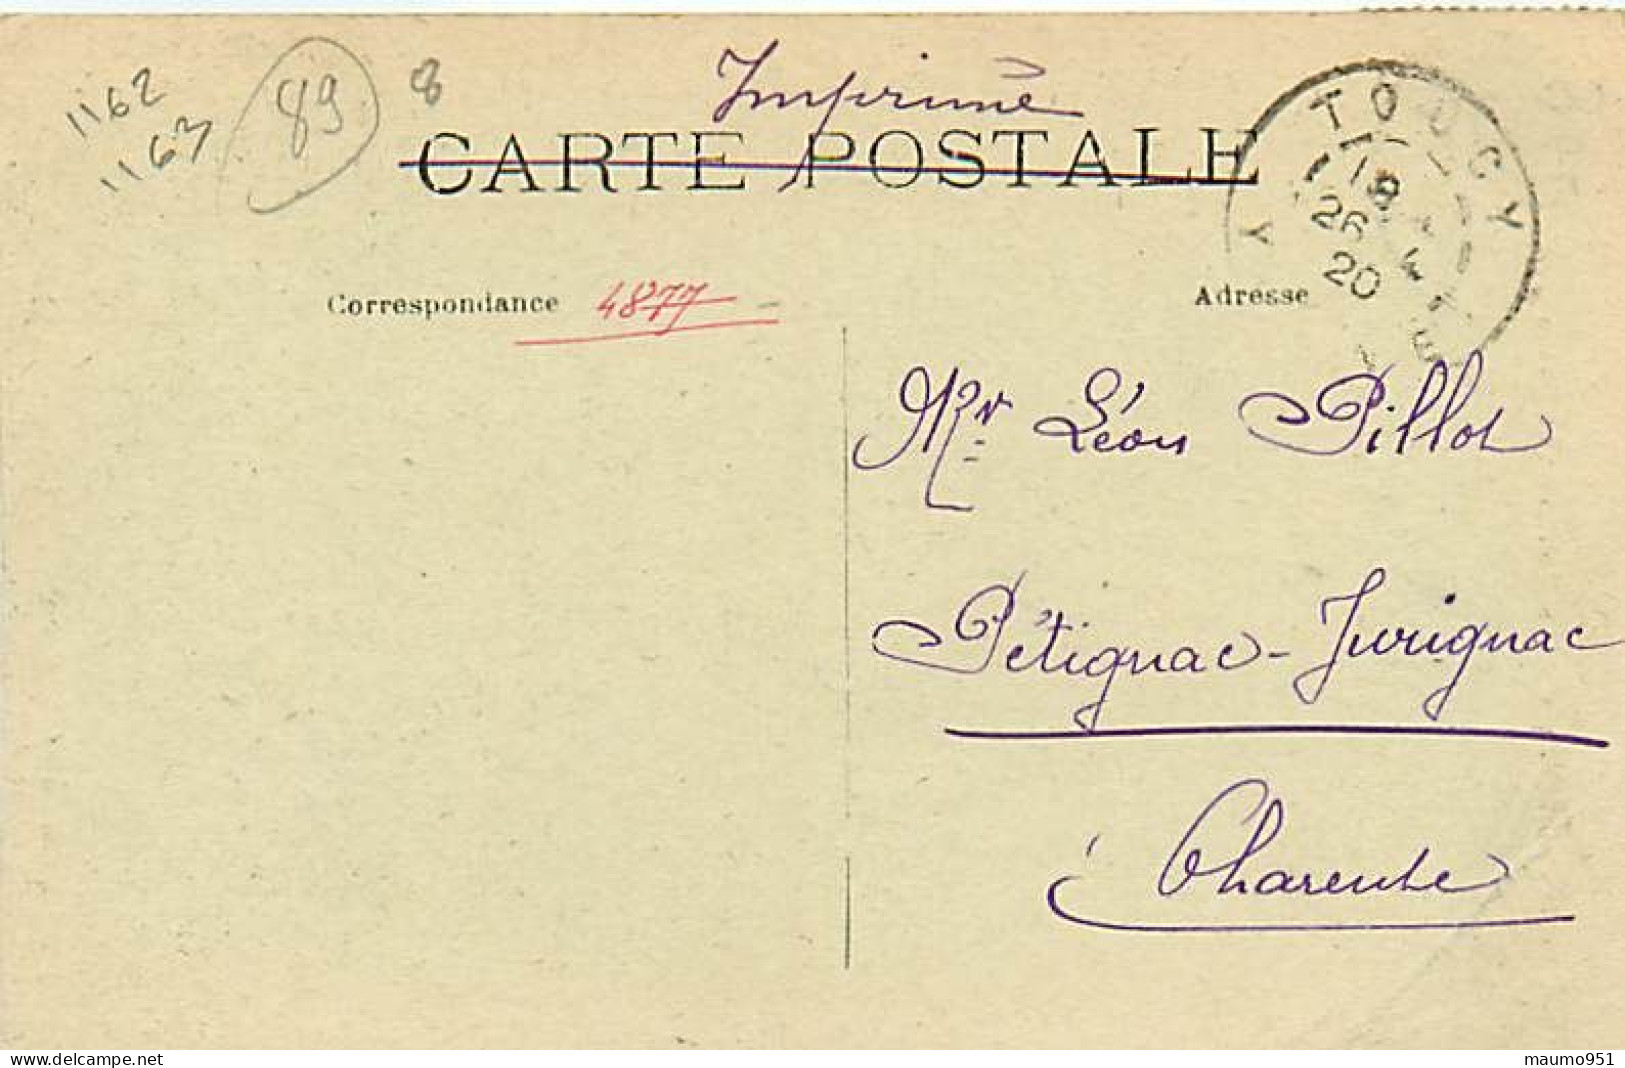 1162
1163
89
8
Imprimé
CARTE POSTALE
TOUCY
18
26 4
20
YONNE
Correspondance 4877
Adresse
Mr. Léon Pillot
Pétignac - Jurignac
Charente
delcampe.net
maumo951